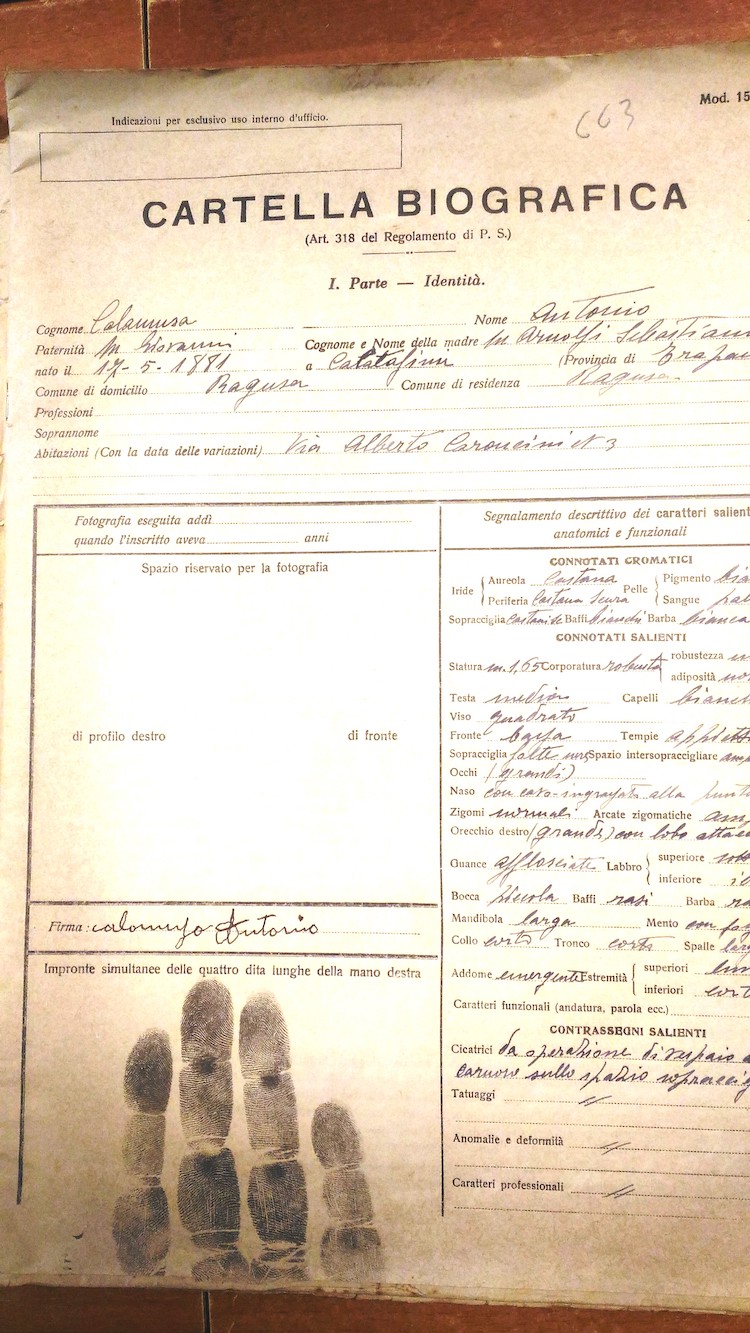 Indicazioni per esclusivo uso interno d'ufficio.
Mod. 15
663
CARTELLA BIOGRAFICA
(Art. 318 del Regolamento di P. S.)
I. Parte — Identità.
Cognome Calamusa Nome Antonio
Paternità fu Giovanni Cognome e Nome della madre fu Arnolfi Sebastian
nato il 17-5-1881 a Calatafimi (Provincia di Trapan
Comune di domicilio Ragusa Comune di residenza Ragusa
Professioni
Soprannome
Abitazioni (Con la data delle variazioni) Via Alberto N 3
Fotografia eseguita addì
quando l'inscritto aveva anni
Spazio riservato per la fotografia
di profilo destro di fronte
Firma: Calamusa Antonio
Impronte simultanee delle quattro dita lunghe della mano destra
Segnalamento descrittivo dei caratteri salient
anatomici e funzionali
CONNOTATI CROMATICI
Iride Aureola Castana Pelle Pigmento bia
Periferia Castana scura Sangue pal
Sopracciglia castanise Baffi bianchi Barba bianca
CONNOTATI SALIENTI
Statura m. 1,65 Corporatura robusta robustezza
adiposità
Testa media Capelli bianc
Viso quadrato
Fronte bassa Tempie
Sopracciglia folte Spazio intersopraccigliare
Occhi (grandi)
Naso con cavo alla punt
Zigomi normali Arcate zigomatiche amp
Orecchio destro (grande) con lobo attac
Guance afflosciate Labbro superiore
inferiore
Bocca piccola Baffi rasi Barba ra
Mandibola larga Mento con fos
Collo corto Tronco corto Spalle larg
Addome emergente Estremità superiori
inferiori cort
Caratteri funzionali (andatura, parola ecc.)
CONTRASSEGNI SALIENTI
Cicatrici da operazione di vespaio
sullo spazio sopraccig
Tatuaggi //
Anomalie e deformità //
Caratteri professionali //